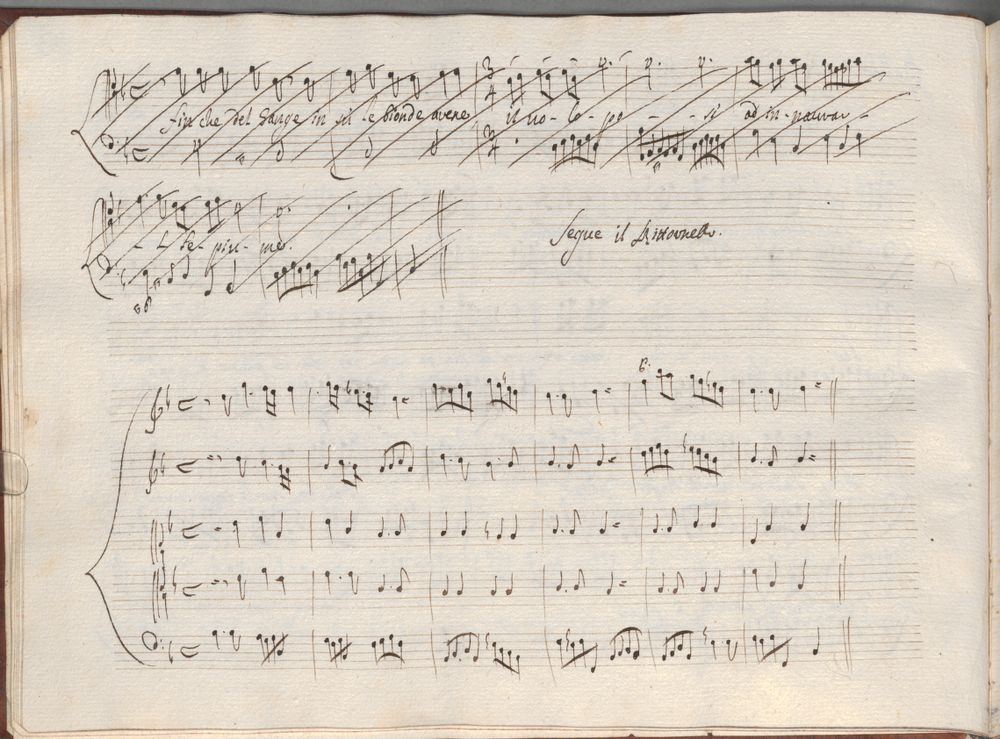 fin che del Gange in sù le bionde arene il vo-lo po - si ad in-naurar-
- - le piu-me.
Segue il Ritornello.